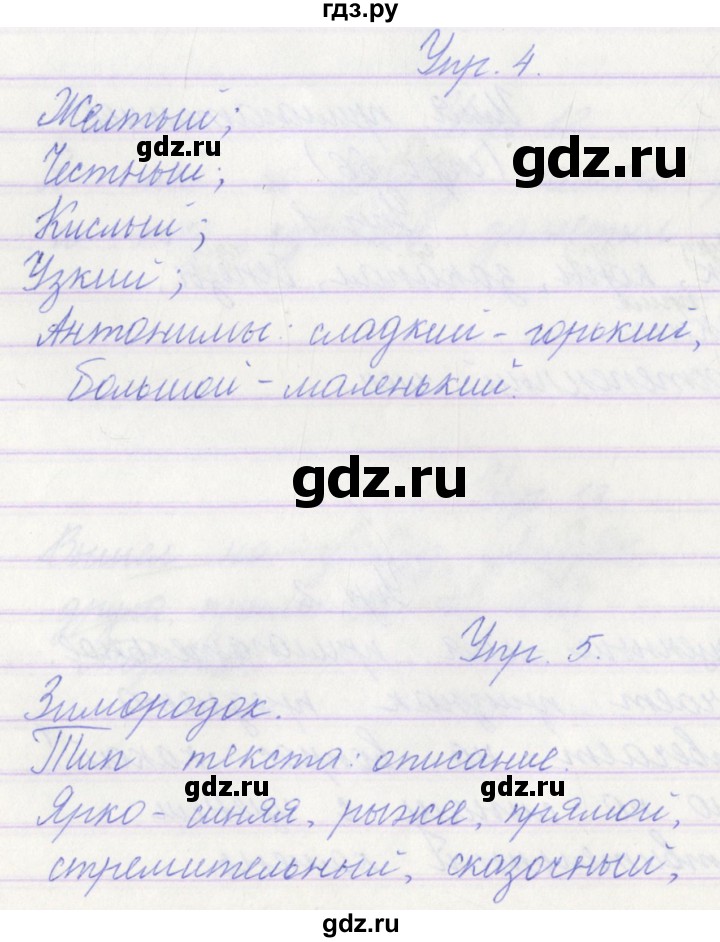 гдз.ру
Упр. 4.
Желтый;
gdz.ru
gdz.ru
Честный;
Кислый;
Узкий;
Антонимы: сладкий - горький,
большой - маленький.
gdz.ru
Упр. 5.
Зимородок.
Тип текста: описание.
gdz.ru
gdz.ru
Ярко - синяя, рыжее, прямой,
стремительный, сказочный,
gdz.ru